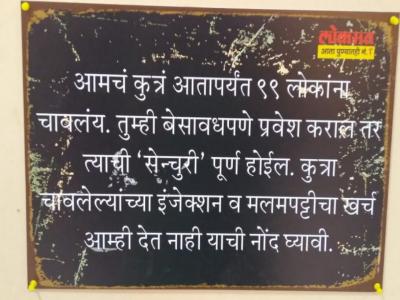 लोकमत
आता पुण्यातही नं. १
आमचं कुत्रं आतापर्यंत ९९ लोकांना
चावलंय. तुम्ही बेसावधपणे प्रवेश कराल तर
त्याची 'सेन्चुरी' पूर्ण होईल. कुत्रा
चावलेल्याच्या इंजेक्शन व मलमपट्टीचा खर्च
आम्ही देत नाही याची नोंद घ्यावी.